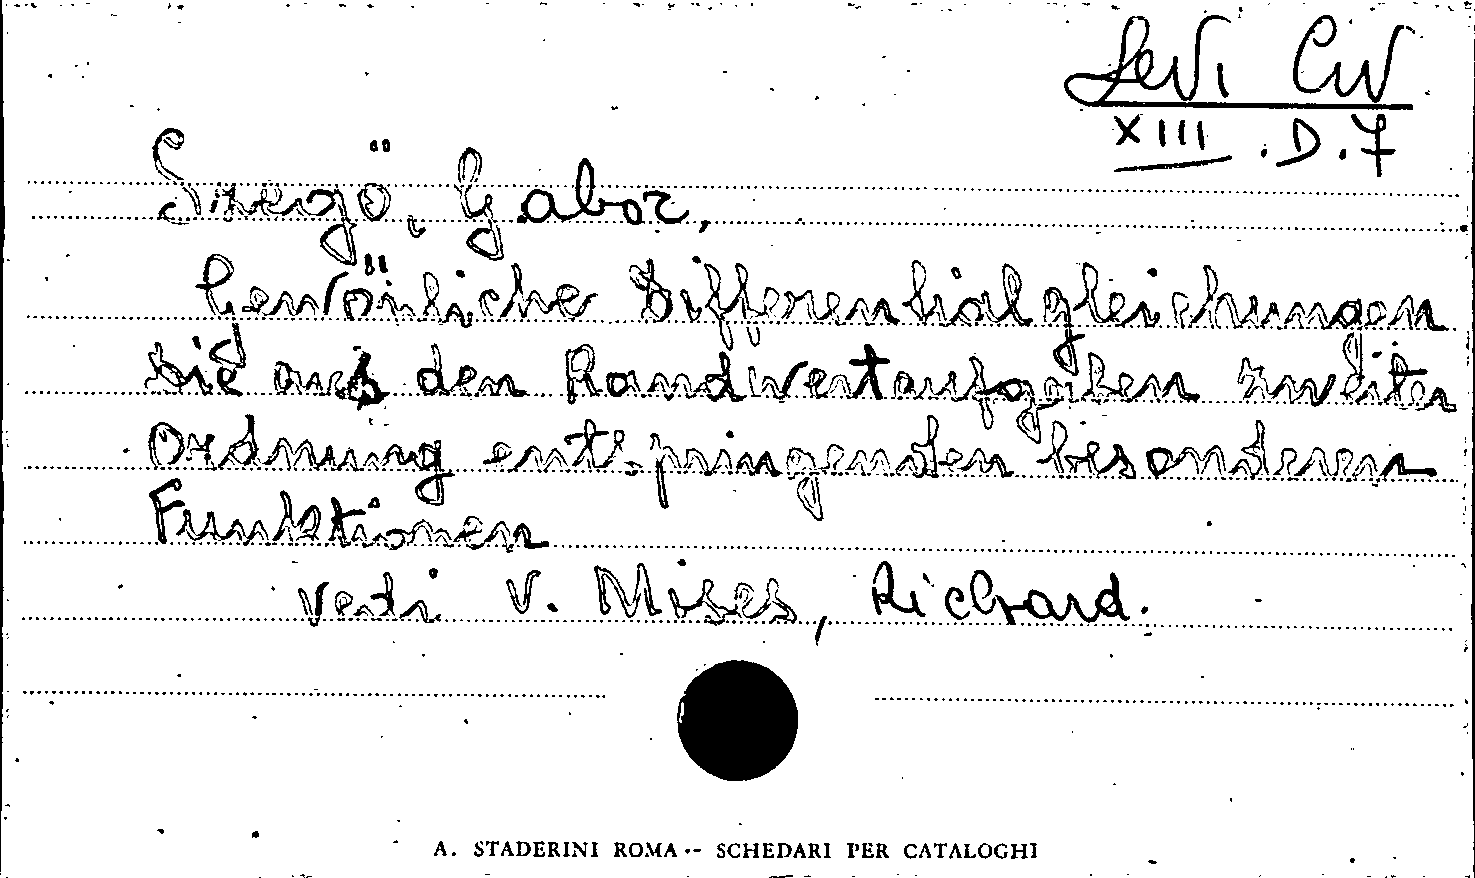 Levi Civ
XIII . D. 7
Szegö, Gabor,
Gewönliche Differentialgleichungen
die aus den Randwertaufgaben zweiter
Ordnung entspringenden besonderen
Funktionen
Vedi V. Mises, Richard.
A. STADERINI ROMA -- SCHEDARI PER CATALOGHI